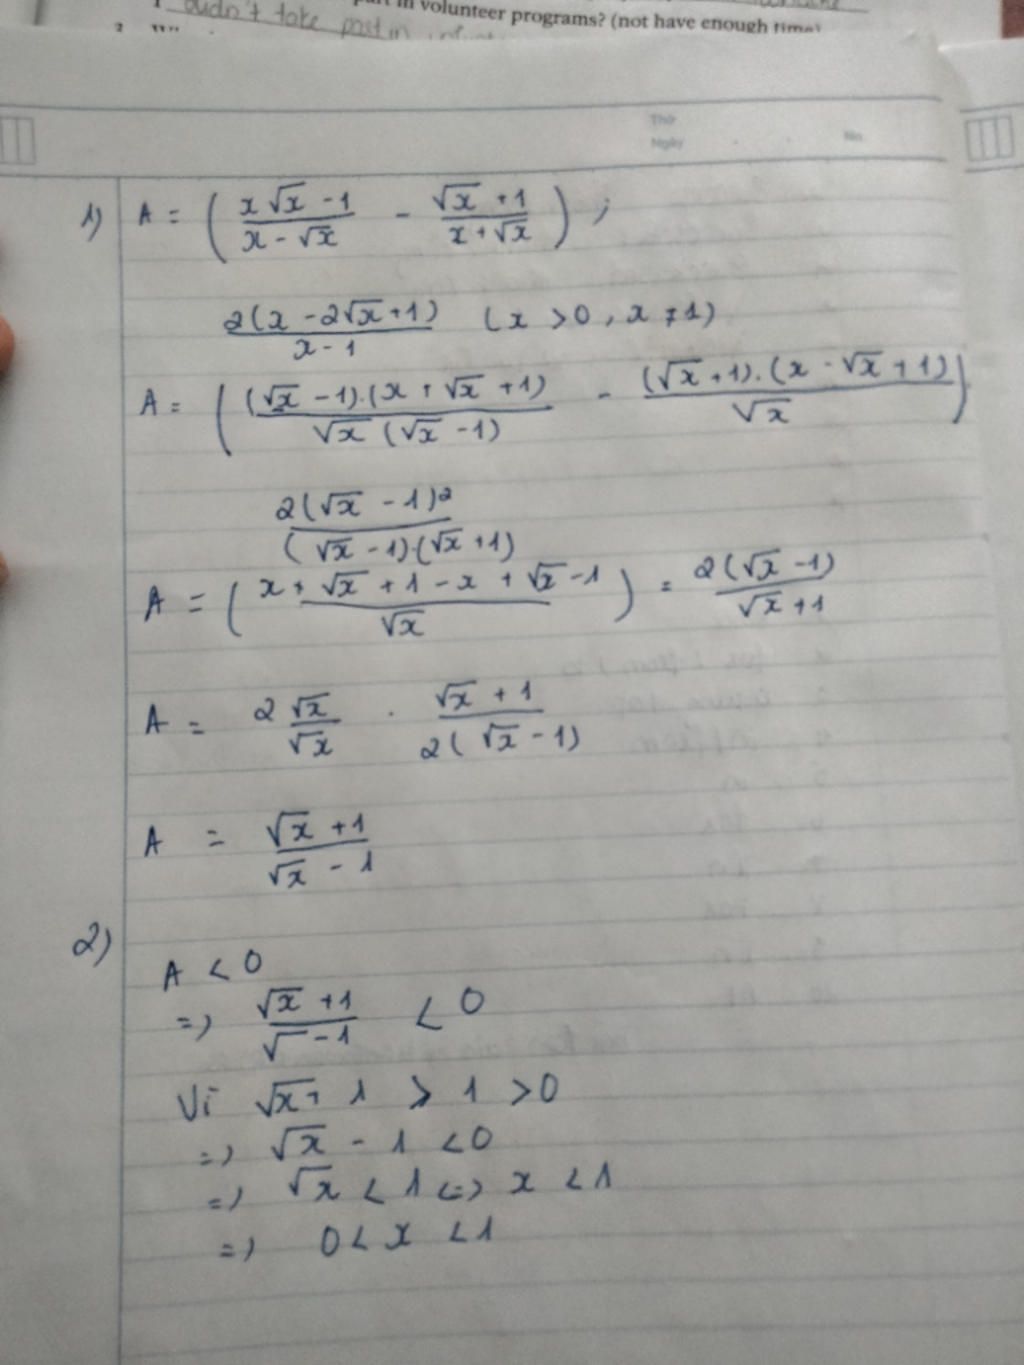 didn't take part in
part in volunteer programs? (not have enough time)
Thứ
Ngày
No.
1) A = ( (x√x - 1)/(x - √x) - (√x + 1)/(x + √x) ) ;
2(x - 2√x + 1)/(x - 1) (x > 0, x ≠ 1)
A = ( (√x - 1).(x + √x + 1)/(√x (√x - 1)) - (√x + 1).(x - √x + 1)/√x )
2(√x - 1)²/((√x - 1).(√x + 1))
A = ( (x + √x + 1 - x + √x - 1)/√x ) = 2(√x - 1)/(√x + 1)
A = 2√x/√x . (√x + 1)/(2(√x - 1))
A = (√x + 1)/(√x - 1)
2)
A < 0
=> (√x + 1)/(√ - 1) < 0
Vì √x + 1 > 1 > 0
=> √x - 1 < 0
=> √x < 1 <=> x < 1
=> 0 < x < 1